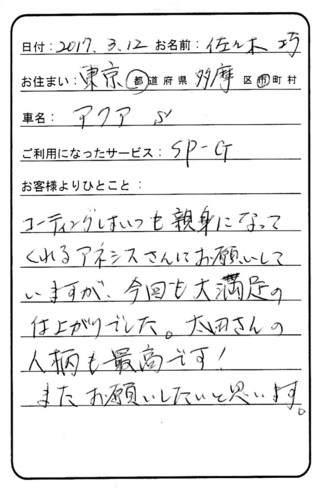 日付：2017.3.12 お名前：佐々木 巧
お住まい：東京都道府県 多摩区市町村
車名：アクア S
ご利用になったサービス：SP-G
お客様よりひとこと：
コーティングはいつも親身になって
くれるアネシスさんにお願いして
いますが、今回も大満足の
仕上がりでした。太田さんの
人柄も最高です！
またお願いしたいと思います。